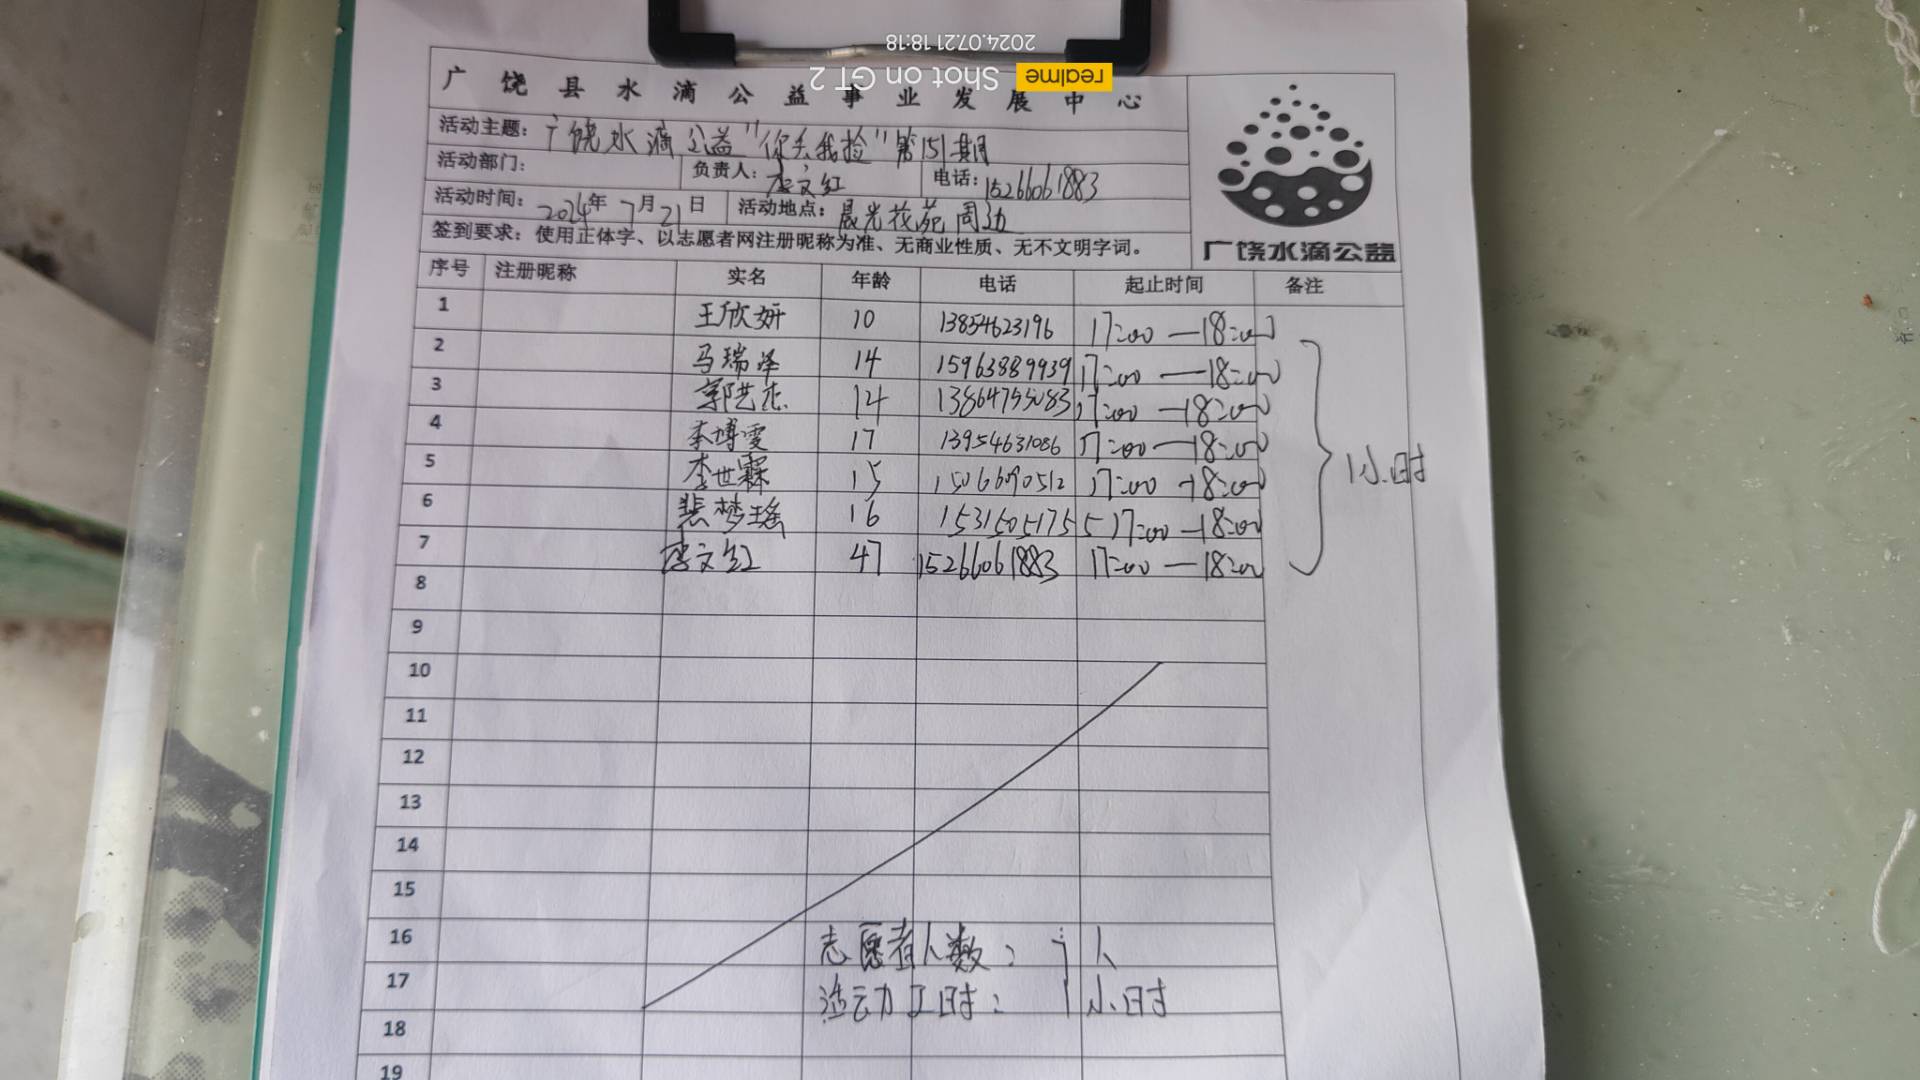 2024.07.21 18:18
realme Shot on GT 2
广饶县水滴公益事业发展中心
活动主题：广饶水滴公益"你丢我捡"第151期
活动部门： 负责人：唐文红 电话：15266061883
活动时间：2024年7月21日 活动地点：晨光花苑周边
签到要求：使用正体字、以志愿者网注册昵称为准、无商业性质、无不文明字词。
广饶水滴公益
序号 注册昵称 实名 年龄 电话 起止时间 备注
1 王欣妍 10 13854623196 17:00—18:00
2 马瑞泽 14 15963889939 17:00—18:00
3 郭艺杰 14 13864795083 17:00—18:00
4 李博雯 17 13954631086 17:00—18:00
5 李世霖 15 15066090512 17:00—18:00
6 裴梦瑶 16 15315051755 17:00—18:00
7 唐文红 47 15266061883 17:00—18:00
1小时
8
9
10
11
12
13
14
15
16 志愿者人数：7人
17 活动工时：1小时
18
19